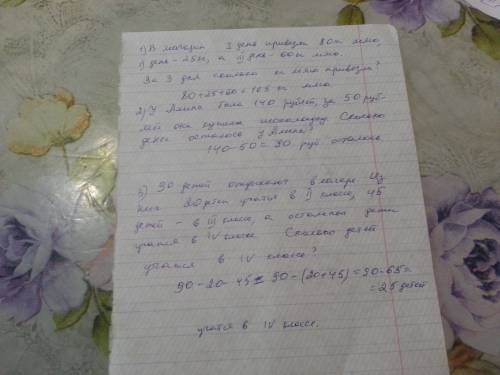 1) В магазин I день привезли 80 кг мяса,
II день - 25 кг, а III день - 60 кг мяса.
За 3 дня сколько кг мяса привезли?
80+25+60=165 кг мяса.
2) У Алима было 140 рублей, за 50 руб-
лей он купил шоколадку. Сколько
денег осталось у Алима?
140-50=90 руб. осталось
3) 90 детей отдыхают в лагере. Из
них 20 детей учатся в II классе, 45
детей - в III классе, а остальные дети
учатся в IV классе. Сколько детей
учатся в IV классе?
90-20-45=90-(20+45)=90-65=
=25 детей
учатся в IV классе.